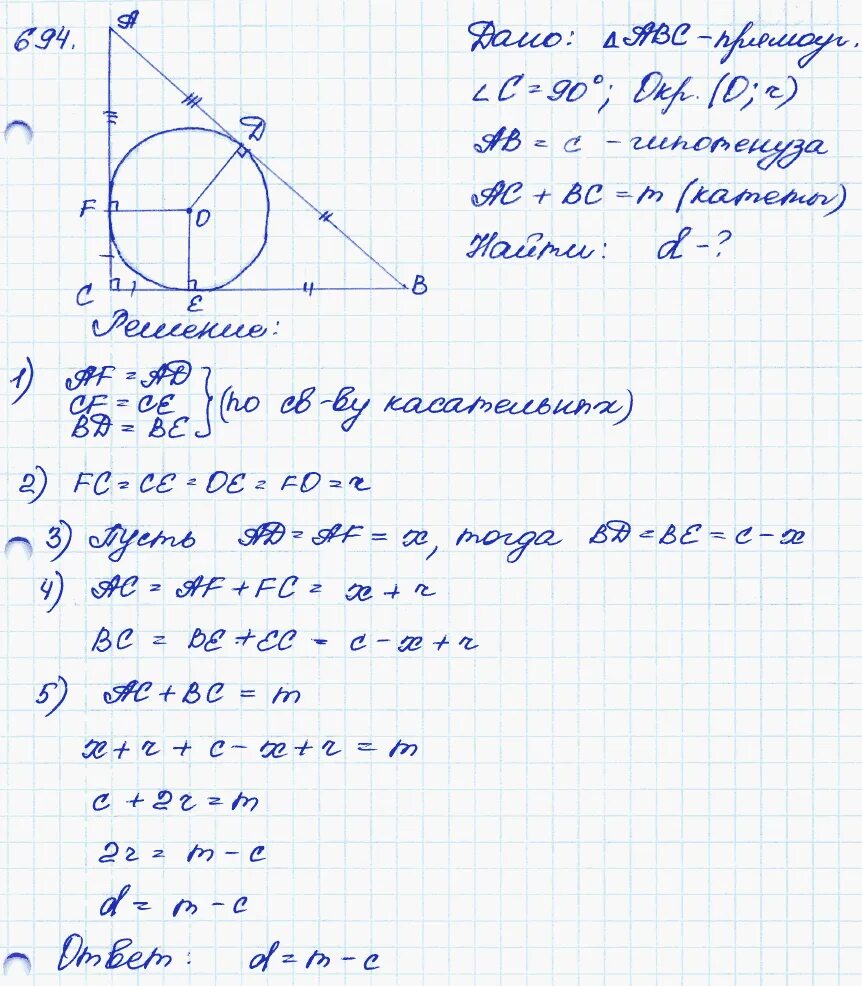 694.
A
D
F
O
C
E
B
Дано: △ABC - прямоуг.
∠C = 90°; Окр. (O; r)
AB = c - гипотенуза
AC + BC = m (катеты)
Найти: d - ?
Решение:
1) AF = AD
CF = CE
BD = BE
(по св-ву касательных)
2) FC = CE = OE = FO = r
3) Пусть AD = AF = x, тогда BD = BE = c - x
4) AC = AF + FC = x + r
BC = BE + EC = c - x + r
5) AC + BC = m
x + r + c - x + r = m
c + 2r = m
2r = m - c
d = m - c
Ответ: d = m - c